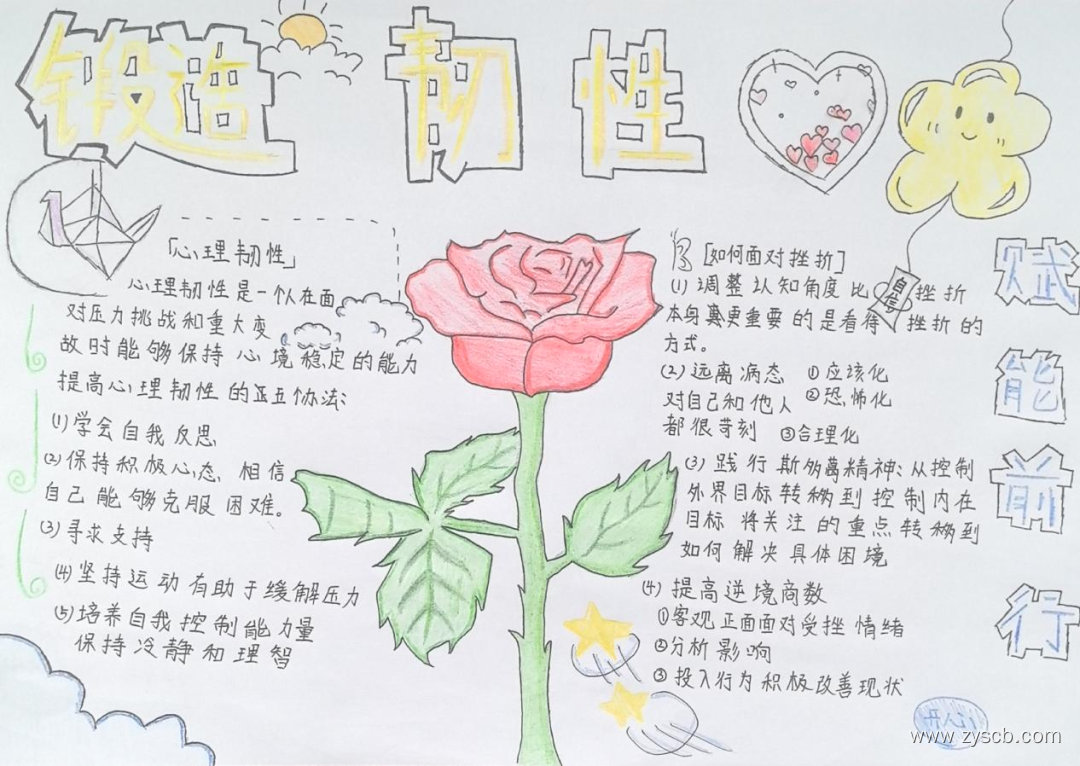 锻造 韧性
「心理韧性」
心理韧性是一个人在面
对压力挑战和重大变
故时能够保持心境稳定的能力
提高心理韧性的正五个办法:
(1)学会自我反思
(2)保持积极心态,相信
自己能够克服困难。
(3)寻求支持
(4)坚持运动有助于缓解压力
(5)培养自我控制能力量
保持冷静和理智
[如何面对挫折]
(1)调整认知角度比挫折
本身更重要的是看待挫折的
方式。
(2)远离病态 ①应该化
对自己和他人 ②恐怖化
都很苛刻 ③合理化
(3)践行斯多葛精神:从控制
外界目标转移到控制内在
目标 将关注的重点转移到
如何解决具体困境
(4)提高逆境商数
①客观正面面对受挫情绪
②分析影响
③投入行为积极改善现状
自信
赋
能
前
行
开心
www.zyscb.com